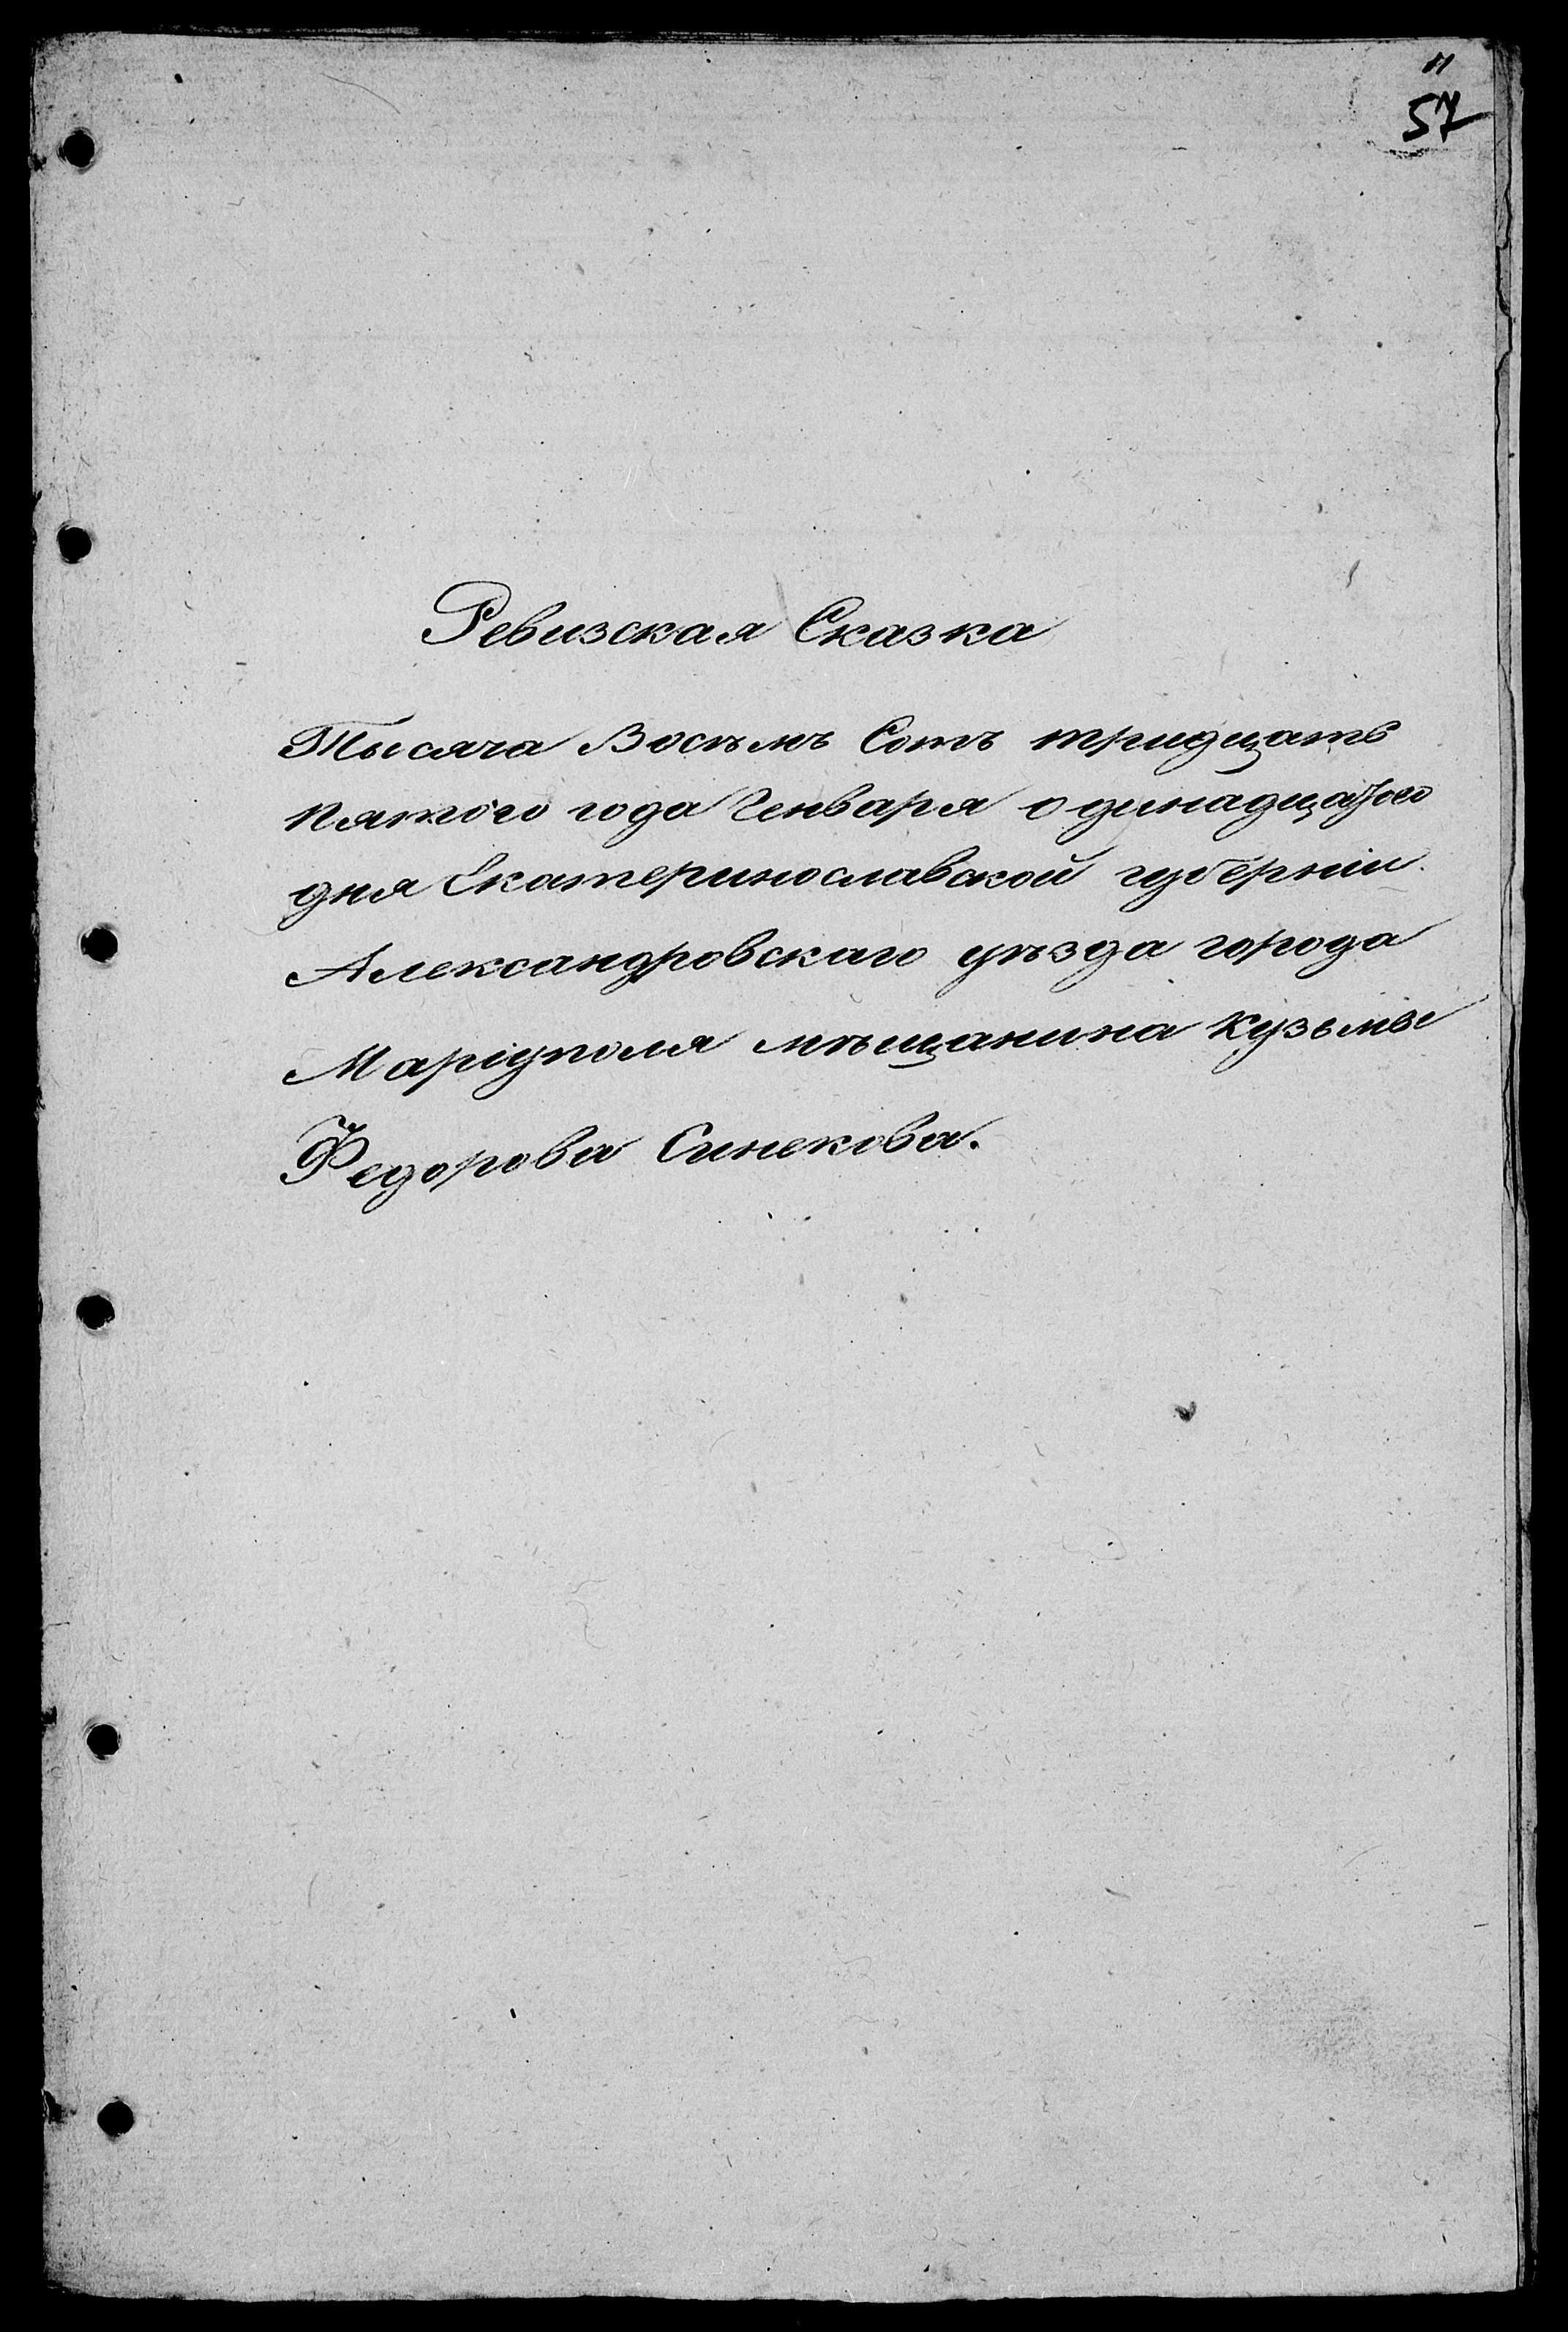 57
Ревизская Сказка
Тысяча Восѣмъ Сотъ тридцать
пятого года Генваря одинадцатого
дня Екатеринославской губерніи
Александровскаго уѣзда города
Маріуполя мѣщанина Кузьмы
Федорова Синекова.